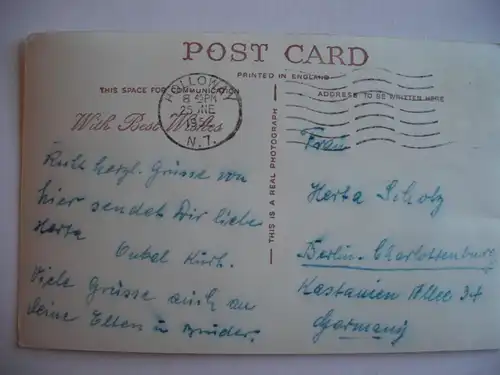 POST CARD
PRINTED IN ENGLAND
THIS SPACE FOR COMMUNICATION
ADDRESS TO BE WRITTEN HERE
HOLLOWAY
8 PM
25 JNE
195
N.7.
With Best Wishes
THIS IS A REAL PHOTOGRAPH
Recht herzl. Grüsse von
hier sendet Dir liebe
Herta
Onkel Kurt.
Viele Grüsse auch an
Deine Eltern u Bruder.
Frau
Herta Scholz
Berlin-Charlottenburg
Kastanien Allee 34
Germany